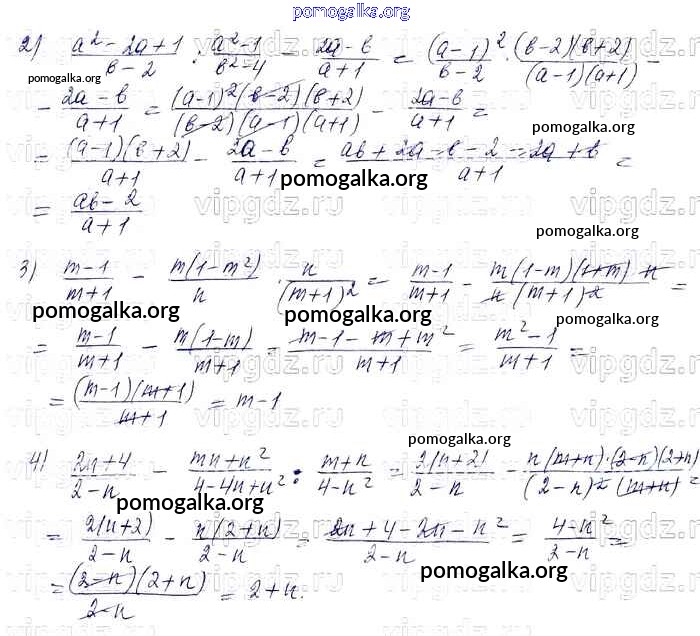 pomogalka.org
2) (a² - 2a + 1)/(в - 2) : (a² - 1)/(в² - 4) - (2a - в)/(a + 1) = (a - 1)²/(в - 2) · (в - 2)(в + 2)/((a - 1)(a + 1)) -
pomogalka.org
- (2a - в)/(a + 1) = (a - 1)²(в - 2)(в + 2)/((в - 2)(a - 1)(a + 1)) - (2a - в)/(a + 1) =
pomogalka.org
= (a - 1)(в + 2)/(a + 1) - (2a - в)/(a + 1) = (aв + 2a - в - 2 - 2a + в)/(a + 1) =
pomogalka.org
= (aв - 2)/(a + 1)
vipgdz.ru
pomogalka.org
3) (m - 1)/(m + 1) - m(1 - m²)/n · n/(m + 1)² = (m - 1)/(m + 1) - m(1 - m)(1 + m) · n/(n(m + 1)²) =
pomogalka.org pomogalka.org pomogalka.org
= (m - 1)/(m + 1) - m(1 - m)/(m + 1) = (m - 1 - m + m²)/(m + 1) = (m² - 1)/(m + 1) =
vipgdz.ru
= (m - 1)(m + 1)/(m + 1) = m - 1
pomogalka.org
4) (2n + 4)/(2 - n) - (mn + n²)/(4 - 4n + n²) : (m + n)/(4 - n²) = 2(n + 2)/(2 - n) - n(m + n) · (2 - n)(2 + n)/((2 - n)²(m + n)) =
pomogalka.org
= 2(n + 2)/(2 - n) - n(2 + n)/(2 - n) = (2n + 4 - 2n - n²)/(2 - n) = (4 - n²)/(2 - n) =
pomogalka.org
= (2 - n)(2 + n)/(2 - n) = 2 + n.